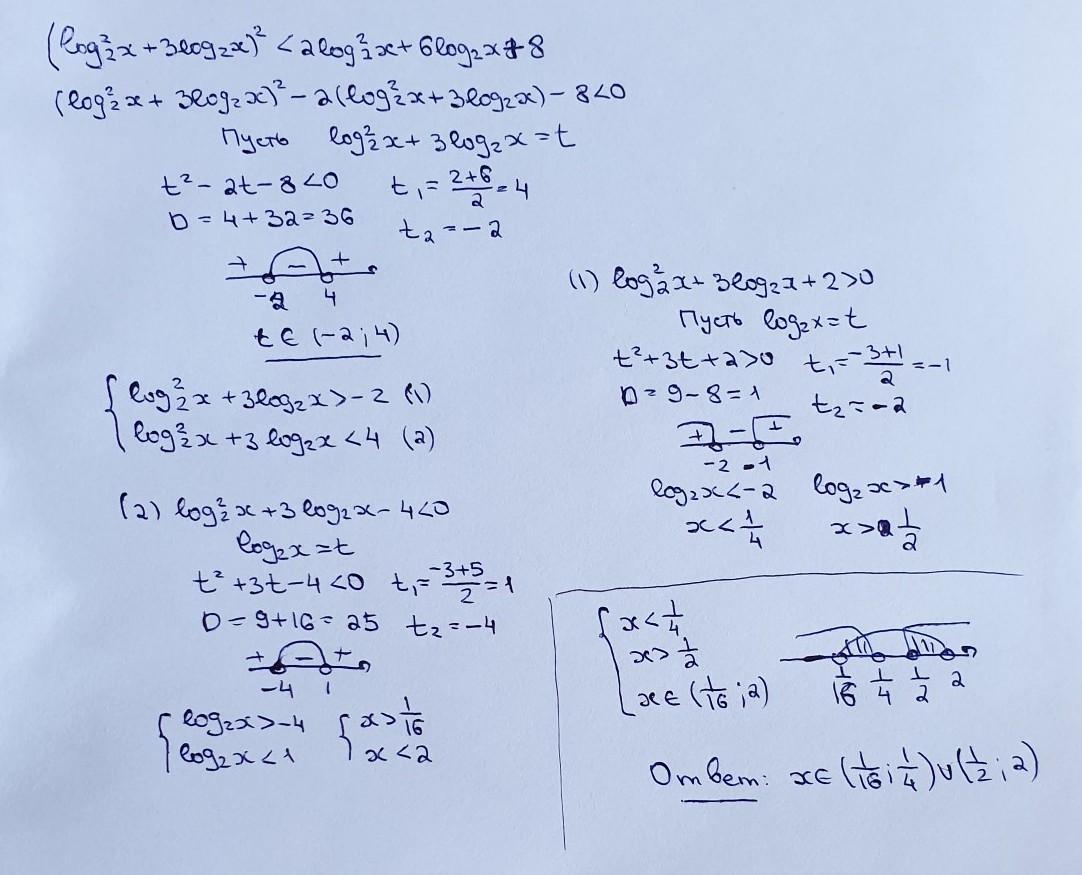 (log₂²x + 3log₂x)² < 2log₂²x + 6log₂x + 8
(log₂²x + 3log₂x)² − 2(log₂²x + 3log₂x) − 8 < 0
Пусть log₂²x + 3log₂x = t
t² − 2t − 8 < 0 t₁ = (2+6)/2 = 4
D = 4 + 32 = 36 t₂ = −2
+ − +
−2 4
t ∈ (−2; 4)
{ log₂²x + 3log₂x > −2 (1)
log₂²x + 3log₂x < 4 (2)
(1) log₂²x + 3log₂x + 2 > 0
Пусть log₂x = t
t² + 3t + 2 > 0 t₁ = (−3+1)/2 = −1
D = 9 − 8 = 1 t₂ = −2
+ − +
−2 −1
log₂x < −2 log₂x > −1
x < 1/4 x > 1/2
(2) log₂²x + 3log₂x − 4 < 0
log₂x = t
t² + 3t − 4 < 0 t₁ = (−3+5)/2 = 1
D = 9 + 16 = 25 t₂ = −4
+ − +
−4 1
{ log₂x > −4 { x > 1/16
log₂x < 1 x < 2
{ x < 1/4
x > 1/2
x ∈ (1/16; 2)
1/16 1/4 1/2 2
Ответ: x ∈ (1/16; 1/4) ∪ (1/2; 2)